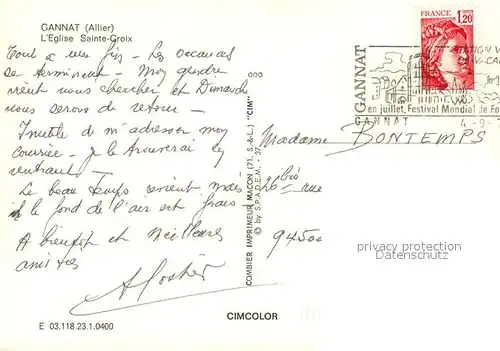 GANNAT (Allier)
L'Eglise Sainte-Croix
Tout a une fin - Les vacances
se terminent - Mon gendre
vient nous chercher et Dimanche
nous serons de retour -
Inutile de m'adresser mon
courrier - je le trouverai en
rentrant -
Le beau temps revient mais
le fond de l'air est frais
A bientôt et Meilleures
amitiés
COMBIER IMPRIMEUR MACON (71, S.-&-L.) "CIM"
© by S.P.A.D.E.M. - 37
FRANCE
1,20
GANNAT
STATION V
en juillet, Festival Mondial de Fo
GANNAT
4-9-
Madame BONTEMPS
bis rue
94500
privacy protection
CIMCOLOR
E 03.118.23.1.0400